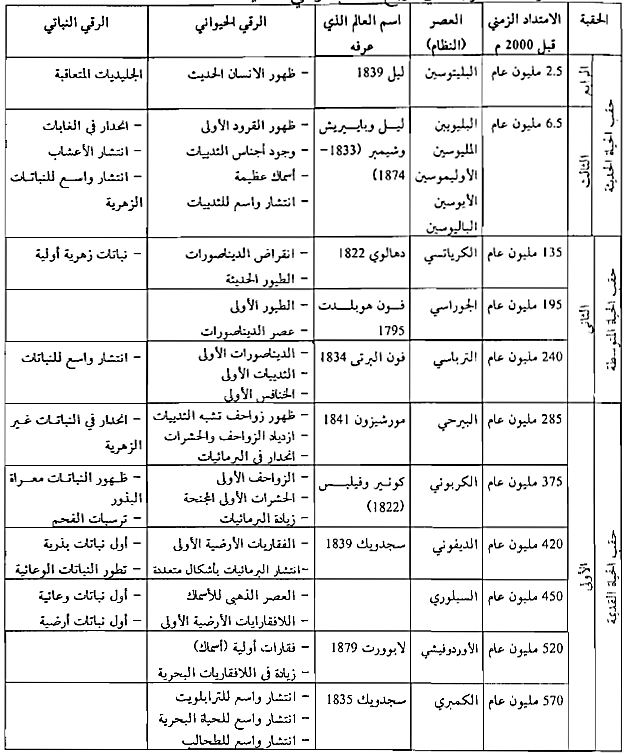 الحقبة الامتداد الزمني العصر اسم العالم الذي الرقي الحيواني الرقي النباتي
قبل 2000 م (النظام) عرفه
حقب الحياة الحديثة
الرابع
2.5 مليون عام البليتوسين ليل 1839 – ظهور الانسان الحديث الجليديات المتعاقبة
الثالث
6.5 مليون عام البليوبين ليل وبايبريش – ظهور القرود الأولى – انحدار في الغابات
المليوسين وشيمبر (1833– – وجود أجناس الثدييات – انتشار الأعشاب
الأوليموسين 1874) – أسماك عظيمة – انتشار واسع للنباتات
الأيوسين – انتشار واسع للثدييات الزهرية
الباليوسين
حقب الحياة المتوسطة
الثاني
135 مليون عام الكرياتسي دهالوي 1822 – انقراض الديناصورات – نباتات زهرية أولية
– الطيور الحديثة
195 مليون عام الجوراسي فون هوبلدت – الطيور الأولى
1795 – عصر الديناصورات
240 مليون عام الترياسي فون البرتى 1834 – الديناصورات الأولى – انتشار واسع للنباتات
– الثدييات الأولى
– الخنافس الأولى
حقب الحياة القديمة
الأولى
285 مليون عام البيرحي مورشيزون 1841 – ظهور زواحف تشبه الثدييات – انحدار في النباتات غير
– ازدياد الزواحف والحشرات الزهرية
– انحدار في البرمائيات
375 مليون عام الكربوني كونير وفيلبس – الزواحف الأولى – ظهور النباتات معراة
(1822) – الحشرات الأولى المجنحة البذور
– زيادة البرمائيات – ترسبات الفحم
420 مليون عام الديفوني سجدويك 1839 – الفقاريات الأرضية الأولى – أول نباتات بذرية
– انتشار البرمائيات بأشكال متعددة – تطور النباتات الوعائية
450 مليون عام السيلوري – العصر الذهبي للأسماك – أول نباتات وعائية
– اللافقارايات الأرضية الأولى – أول نباتات أرضية
520 مليون عام الأوردوفيشي لابوورت 1879 – فقارات أولية (أسماك)
– زيادة في اللافقاريات البحرية
570 مليون عام الكمبري سجدويك 1835 – انتشار واسع للترايلويت
– انتشار واسع للحياة البحرية
– انتشار واسع للطحالب